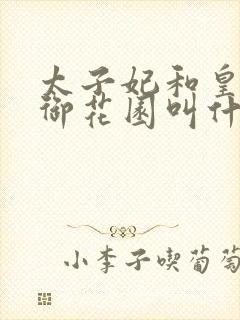 太子妃和皇
御花园叫什
小李子喫葡萄